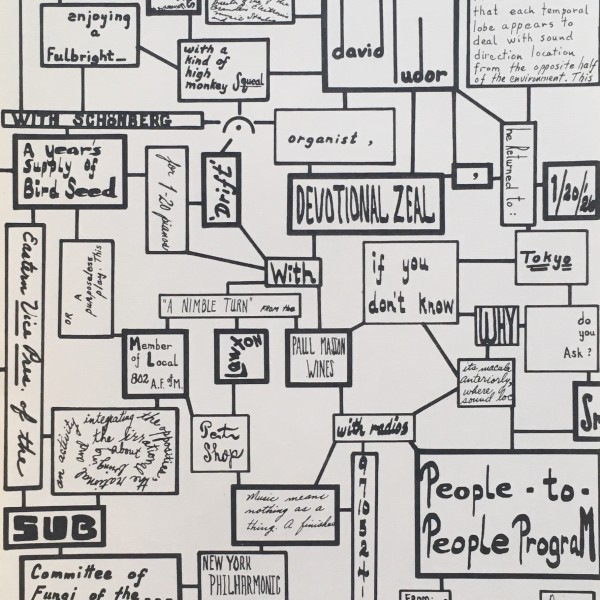 enjoying
a
Fulbright—
with a
kind of
high
monkey Squeal
david
Tudor
that each temporal
lobe appears to
deal with sound
direction location,
from the opposite half
of the environment. This
WITH SCHÖNBERG
A year's
Supply of
Bird Seed
for 1-20 pianos
Drift:
organist,
DEVOTIONAL ZEAL
,
he returned to:
1/20/26
Eastern Vice Pres. of the
With
if you
don't know
Tokyo
"A NIMBLE TURN" FROM the
Member
of Local
802 A.F. of M.
PAUL MASSON
WINES
WHY
do
you
Ask?
its
anteriorly,
where a
sound
integrating the opposites,
an activity
the rational
and the irrational
about
Pet
Shop
with radios
Music means
nothing as a
thing. A finished
People-to-
People PrograM
SUB
Committee of
Fungi of the
NEW YORK
PHILHARMONIC
From: